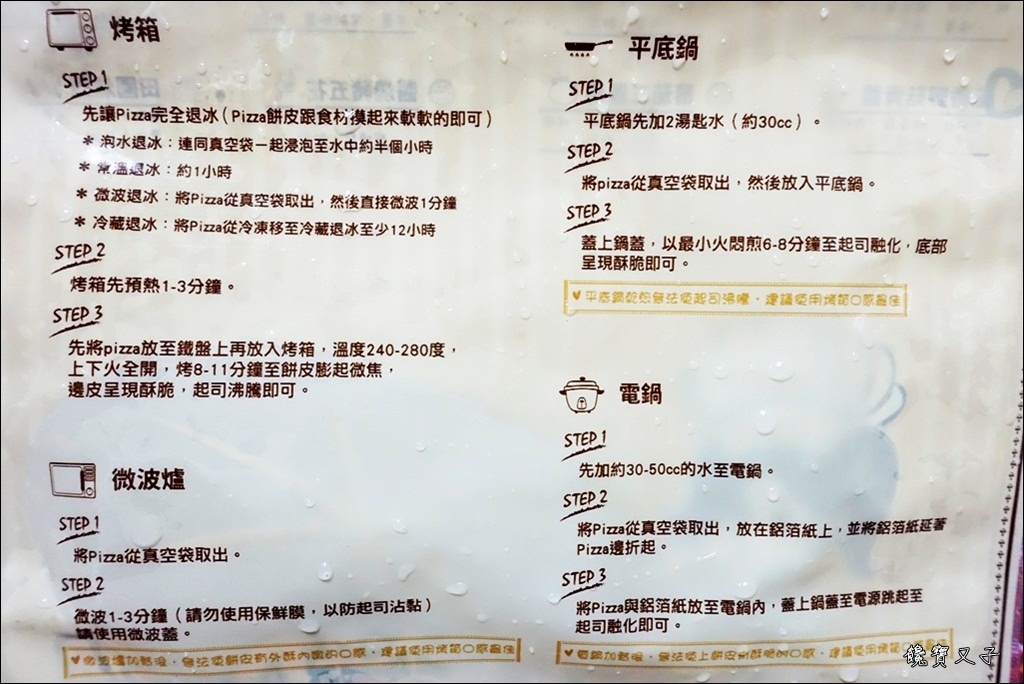 烤箱
STEP 1
先讓Pizza完全退冰(Pizza餅皮跟食材摸起來軟軟的即可)
＊ 泡水退冰：連同真空袋一起浸泡至水中約半個小時
＊ 常溫退冰：約1小時
＊ 微波退冰：將Pizza從真空袋取出，然後直接微波1分鐘
＊ 冷藏退冰：將Pizza從冷凍移至冷藏退冰至少12小時
STEP 2
烤箱先預熱1-3分鐘。
STEP 3
先將pizza放至鐵盤上再放入烤箱，溫度240-280度，
上下火全開，烤8-11分鐘至餅皮膨起微焦，
邊皮呈現酥脆，起司沸騰即可。
微波爐
STEP 1
將Pizza從真空袋取出。
STEP 2
微波1-3分鐘(請勿使用保鮮膜，以防起司沾黏)
請使用微波蓋。
♥微波爐加熱後，無法使餅皮有外酥內嫩的口感，建議使用烤箱口感最佳
平底鍋
STEP 1
平底鍋先加2湯匙水(約30cc)。
STEP 2
將pizza從真空袋取出，然後放入平底鍋。
STEP 3
蓋上鍋蓋，以最小火悶煎6-8分鐘至起司融化，底部
呈現酥脆即可。
♥平底鍋乾煎無法使起司沸騰，建議使用烤箱口感最佳
電鍋
STEP 1
先加約30-50cc的水至電鍋。
STEP 2
將Pizza從真空袋取出，放在鋁箔紙上，並將鋁箔紙延著
Pizza邊折起。
STEP 3
將Pizza與鋁箔紙放至電鍋內，蓋上鍋蓋至電源跳起至
起司融化即可。
♥電鍋加熱後，無法使上餅皮酥脆的口感，建議使用烤箱口感最佳
饞寶又子